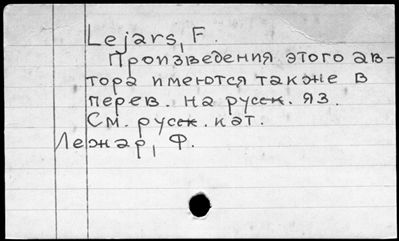 Lejars, F.
Произведения этого ав-
тора имеются также в
перев. на русск. яз.
См. русск. кат.
Лежар, Ф.